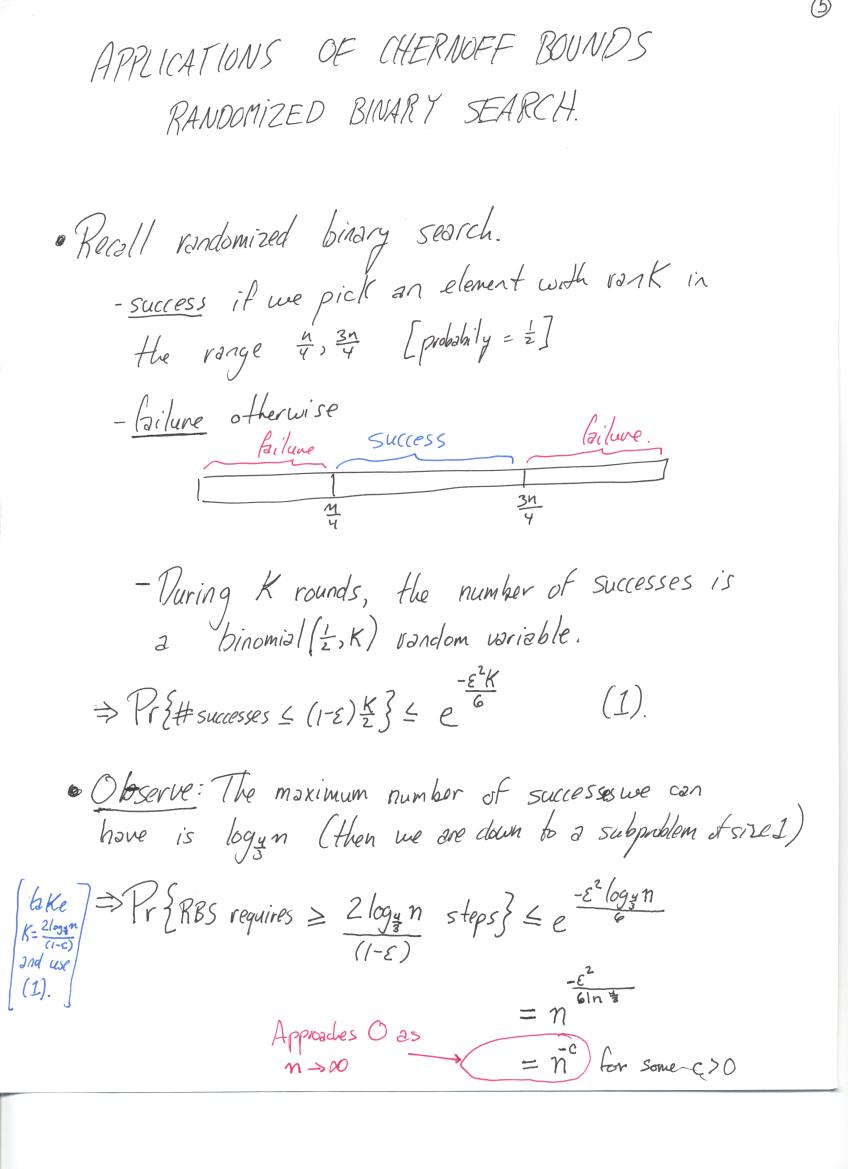 5
APPLICATIONS OF CHERNOFF BOUNDS
RANDOMIZED BINARY SEARCH.
• Recall randomized binary search.
- success if we pick an element with rank in
the range n/4, 3n/4 [probabily = 1/2]
- failure otherwise
failure success failure.
n/4 3n/4
- During K rounds, the number of successes is
a binomial(1/2, K) random variable.
⇒ Pr{# successes ≤ (1-ε) K/2} ≤ e^(-ε²K/6) (1).
• Observe: The maximum number of successes we can
have is log_{4/3} n (then we are down to a subproblem of size 1)
[take
K = 2log_{4/3}n/(1-ε)
and use
(1).]
⇒ Pr{RBS requires ≥ 2log_{4/3} n/(1-ε) steps} ≤ e^(-ε² log_{4/3} n/6)
= n^(-ε²/(6 ln 4/3))
Approaches 0 as
n → ∞
= n^(-c) for some c > 0